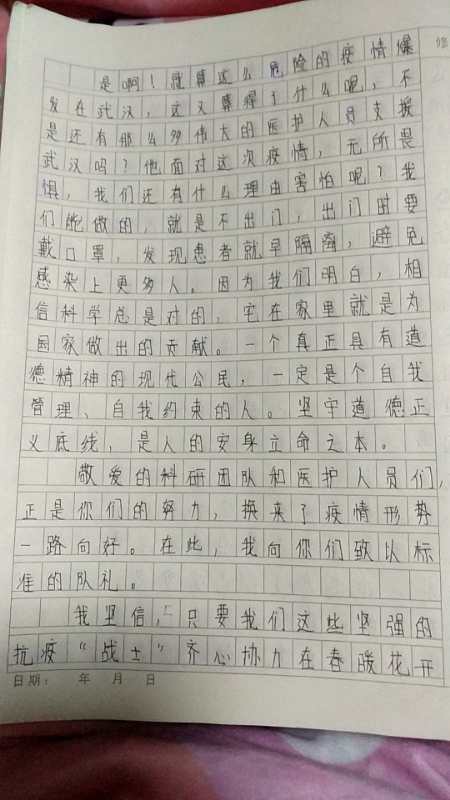 是啊！就算这么危险的疫情爆
发在武汉，这又算得了什么呢，不
是还有那么多伟大的医护人员支援
武汉吗？他面对这次疫情，无所畏
惧，我们还有什么理由害怕呢？我
们能做的，就是不出门，出门时要
戴口罩，发现患者就早隔离，避免
感染上更多人。因为我们明白，相
信科学总是对的，宅在家里就是为
国家做出的贡献。一个真正具有道
德精神的现代公民，一定是个自我
管理、自我约束的人。坚守道德正
义底线，是人的安身立命之本。
敬爱的科研团队和医护人员们，
正是你们的努力，换来了疫情形势
一路向好。在此，我向你们致以标
准的队礼。
我坚信，只要我们这些坚强的
抗疫“战士”齐心协力在春暖花开
日期： 年 月 日